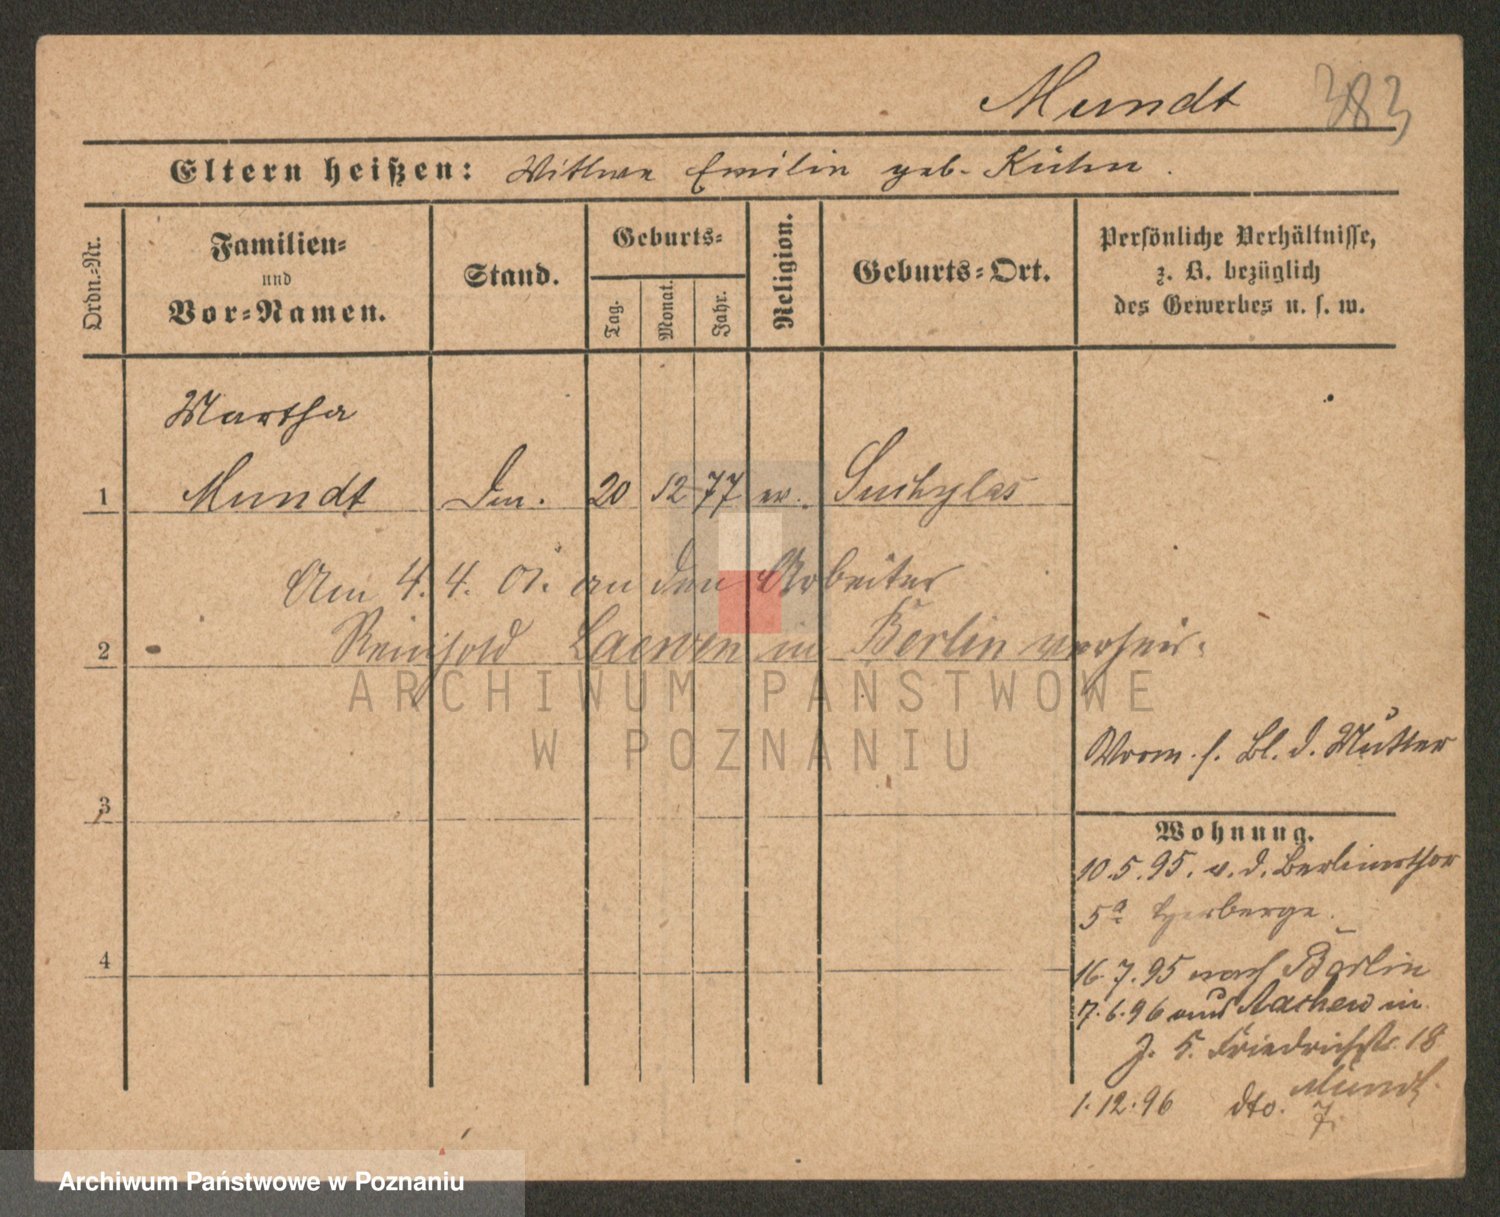 Mundt 383
Eltern heißen: Wittwe Emilie geb. Kühn.
Ordn.-Nr.
Familien-
und
Vor-Namen.
Stand.
Geburts-
Tag.
Monat.
Jahr.
Religion.
Geburts-Ort.
Persönliche Verhältnisse,
z. B. bezüglich
des Gewerbes u. s. w.
Martha
1 Mundt 20 12 77 ev. Suchylas
Am 4. 4. 01. an den Arbeiter
2 Reinhold Laewen in Berlin verheir.
ARCHIWUM PAŃSTWOWE
W POZNANIU
Vorm. s. Bl. d. Mutter
3
Wohnung.
10.5.95. v. d. Berlinerthor
5a Herberge.
4
16.7.95 nach Berlin
7.6.96 aus Aachen in
J. 5. Friedrichstr. 18
Mundt.
1.12.96 dto. 7.
Archiwum Państwowe w Poznaniu